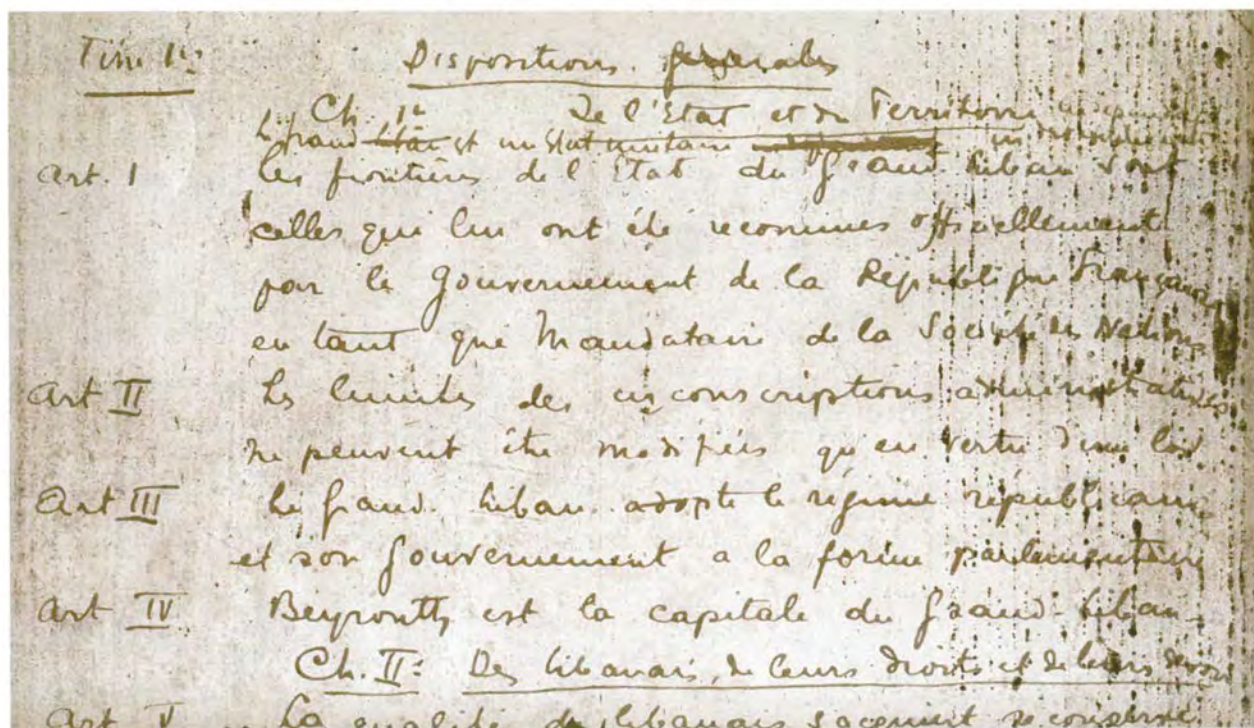 Titre 1er Dispositions générales
Ch. 1er De l'Etat et du Territoire
Le Grand Liban est un Etat unitaire
Art. I Les frontières de l'Etat du Grand Liban sont
celles qui lui ont été reconnues officiellement
par le Gouvernement de la République Française
en tant que Mandataire de la Société des Nations
Art II Les limites des circonscriptions administratives
ne peuvent être modifiées qu'en vertu d'une loi
Art III Le Grand Liban adopte le régime républicain
et son Gouvernement a la forme parlementaire
Art IV Beyrouth est la capitale du Grand Liban
Ch. II: Des Libanais, de leurs droits et de leurs devoirs
Art V La qualité de Libanais s'acquiert